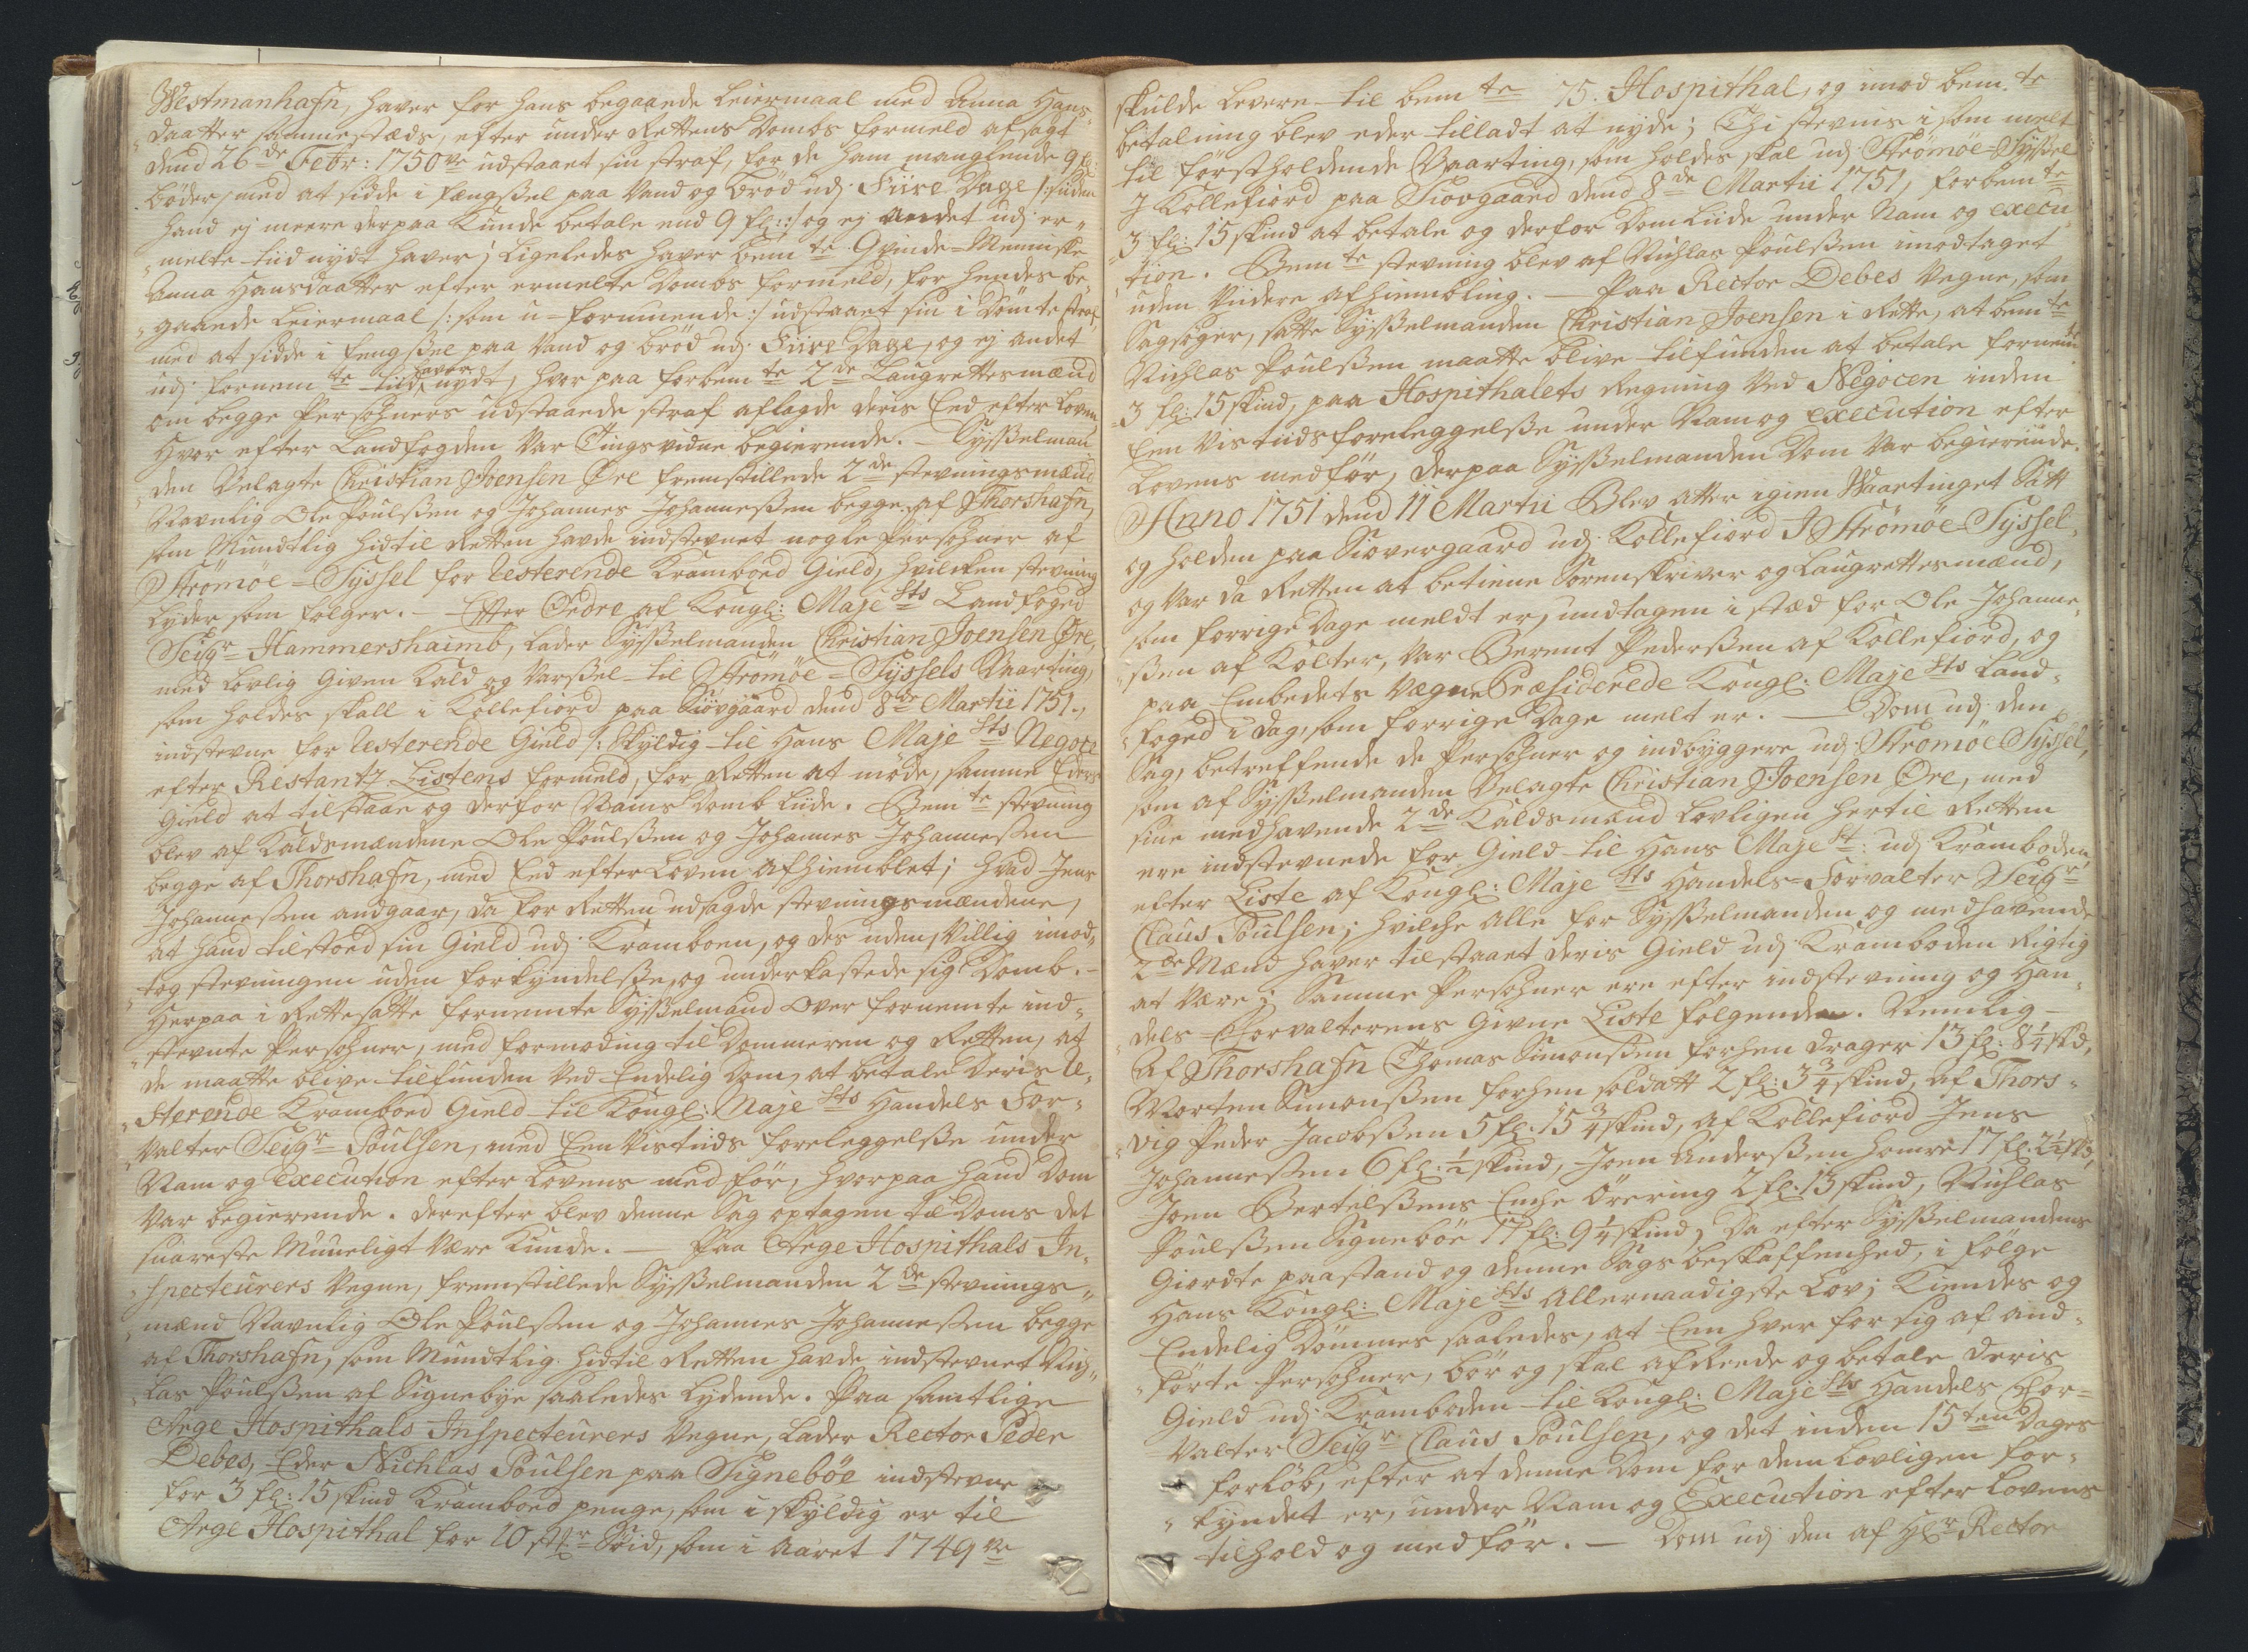 Westmanhafn, haver for hans begaaede Leiermaal med Anna Hans-
„daatter sammestæds, efter under Rettens Dombs formeld afsagt
dend 26de Febr: 1750ve udstaaet sin straf, for de ham manglende 9 fl:
bøder, med at sidde i fængsßel paa Vand og brød udj Fiire Dage /: siden
hand ej meere derpaa kunde betale end 9 fl: :/ og ej andet udj er-
„melte tiid nydt haver; Ligeledes haver bemte Qvinde-Menniske
Anna Hansdaatter efter ermelte Dombs formeld, for hendes be-
„gaaede Leiermaal /: som u-formuende :/ udstaaet sin i Dömte straf,
med at sidde i fengsßel paa Vand og brød udj Fiire Dage, og ej andet
udj fornemte tiid haver nydt, hvor paa forbemte 2de Laugrettesmænd
om begge Persohners udstaaede straf aflagde deris Eed efter Loven,
hvor efter Landfogden var Tingsvidne begierende. — Sysßelman-
„den Velagte Christian Joensen Øre fremstillede 2de stevningsmænd
Navnlig Ole Poulsßen og Johannes Johannesßen begge af Thorshafn,
som Mundtlig hidtil Retten havde indstevnet nogle Persohner af
Strömöe-Syssel for Resterende Kramboed Gield, hvilcken stevning
lyder som følger. — Efter Ordre af Kongl: Majests Landfoged
Seigr Hammershaimb, lader Sysßelmanden Christian Joensen Øre,
med Lovlig Given Kald og Varsßel til Strömöe-Syssels Vaarting,
som holdes skall i Kollefiord paa Siövgaard dend 8de Martii 1751.,
indstevne for Resterende Gield /: skyldig til Hans Majests Negoce
efter Restantz Listens formeld, for Retten at møde, samme Eders
Gield at tilstaae og derfor Nams Domb liide. Bemte stevning
blev af Kaldsmændene Ole Poulsßen og Johannes Johannesßen
begge af Thorshafn, med Eed efter Loven afhiemblet; hvad Jens
Johannesßen andgaar, da for Retten udsagde stevningsmændene,
at hand tilstoed sin Gield udj Kramboen, og des uden, Villig imod-
„tog stevningen uden forkyndelsße, og underkastede sig Domb. —
Herpaa i Rettesatte fornemte Sysßelmand over fornemte ind-
„stevnte Persohner, med formoding til Dommeren og Retten, at
de maatte blive tilfunden ved Endelig Dom, at betale deris Re-
„sterende Kramboed Gield til Kongl: Majests Handels For-
„valter Seigr Poulsen, med Een vis tiids forelæggelsße under
Nam og Execution efter Lovens medför, hvorpaa hand Dom
var begierende. Derefter blev denne Sag optagen til Doms det
snareste Mueligt være kunde. — Paa Arge Hospithals In-
„specteurers Vegne, fremstillede Sysßelmanden 2de stevnings-
„mænd Navnlig Ole Poulsßen og Johannes Johannesßen begge
af Thorshafn, som Mundtlig hidtil Retten havde indstevnet Nich-
„las Poulsßen af Signebye saaledes lydende. Paa samtlige
Arge Hospithals Inspecteurers Vegne, lader Rector Peder
Debes, Eder Nichlas Poulsen paa Signeböe indstevne
for 3 fl: 15 skind Kramboed penge, som i skyldig er til
Arge Hospithal for 10 Söid, som i Aaret 1749ve
skulde levere til bemte 75. Hospithal, og imod bemte
betalning blev eder tilladt at nyde; Thi stevnis i som melt
til förstholdende Vaarting, som holdes skal udj Strömöe-Syßel
J Kollefiord paa Siovgaard dend 8de Martii 1751, forbemte
3 fl: 15 skind at betale og derfor Dom liide under Nam og execu-
„tion. Bemte stevning blev af Nichlas Poulsßen imodtaget
uden Viidere afhiembling. — Paa Rector Debes Vegne, som
Sagsöger, satte Sysßelmanden Christian Joensen i Rette, at bemte
Nichlas Poulsßen maatte blive tilfunden at betale fornemte
3 fl: 15 skind, paa Hospithalets Regning ved Negocen inden
Een vis tiids forelæggelsße under Nam og execution efter
Lovens medför, derpaa Sysßelmanden Dom var begierende.
Anno 1751 dend 11 Martii Blev atter igien Waartinget Satt
og holden paa Siövergaard udj Kollefiord J Strömöe-Syssel,
og var da Retten at betiene Sorenskriver og Laugrettesmænd,
som forrige Dage meldt er, undtagen i stæd for Ole Johanne-
„sßen af Kolter, var Berent Pedersßen af Kollefiord, og
paa Embedets Vegne Præsiderede Kongl: Majests Land-
„foged i dag, som forrige Dage melt er. — Dom udj den
Sag, betreffende de Persohner og indbyggere udj Strömöe Syssel,
som af Sysßelmanden Velagte Christian Joensen Øre, med
sine medhavende 2de Kaldsmænd lovligen hertil Retten
ere indstevnede for Gield til Hans Majest: udj Kramboden,
efter Liste af Kongl: Majests Handels-Forvalter Seigr
Claus Poulsen; hvilche alle for Sysßelmanden og medhavende
2de Mænd haver tilstaaet deris Gield udj Kramboden Rigtig
at være; Samme Persohner ere efter indstevning og Han-
„dels-Forvalterens Givne Liste følgende. Nemlig —
Af Thorshafn Thomas Simonsßen forhen Drager 13 fl: 8 1/4 skd,
Morten Simonsßen forhen soldatt 2 fl: 3 3/4 skind, af Thors-
„vig Peder Jacobsßen 5 fl: 15 3/4 skind, af Kollefiord Jens
Johannesßen 6 fl: 1/2 skind, Joen Andersßen Homre 17 fl: 2 1/2 skd,
Joen Bertelsßens Enche Örering 2 fl: 13 skind, Nichlas
Poulsßen Signeböe 11 fl: 9 1/4 skind, Da efter Sysßelmandens
Giordte paastand og denne Sags beskaffenhed, i følge
Hans Kongl: Majests Allernaadigste Lov; Kiendes og
Endelig Dömmes saaledes, at Een hver for sig af and-
„förte Persohner, bör og skal afrede og betale deris
Gield udj Kramboden til Kongl: Majests Handels For-
valter Seigr Claus Poulsen, og det inden 15ten Dages
forlöb, efter at denne Dom for dem lovligen for-
„kyndet er, under Nam og Execution efter Lovens
tilhold og medför. — Dom udj den af Hr Rector